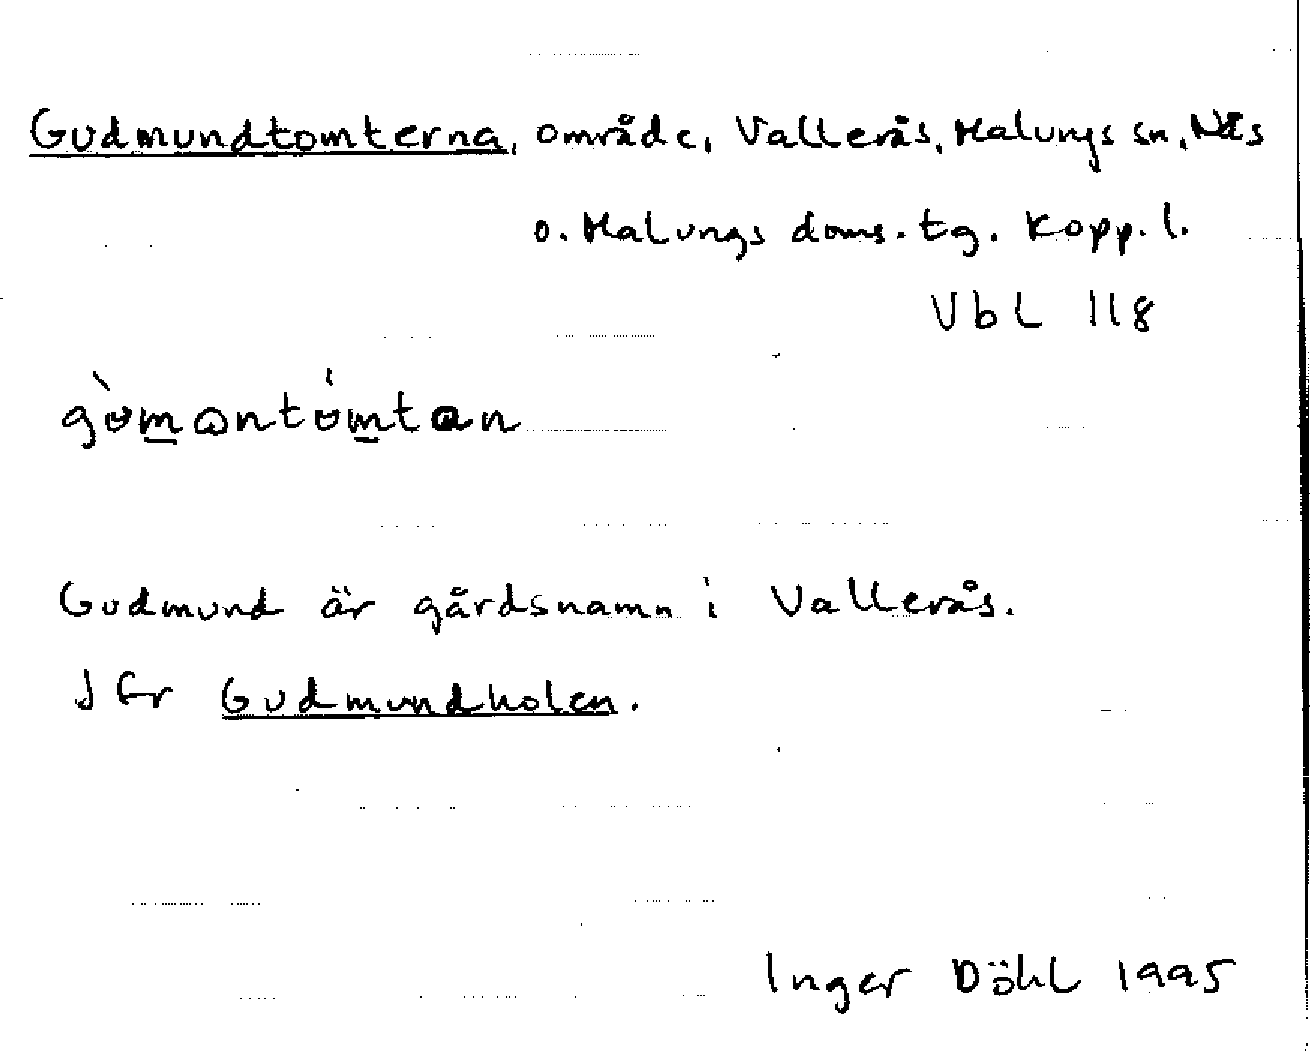 Gudmundtomterna, område, Vallerås, Malungs sn, Nås
o. Malungs doms. tg. Kopp. l.
VbL 118
Gudmund är gårdsnamn i Vallerås.
Jfr Gudmundholen.
Inger Döhl 1995